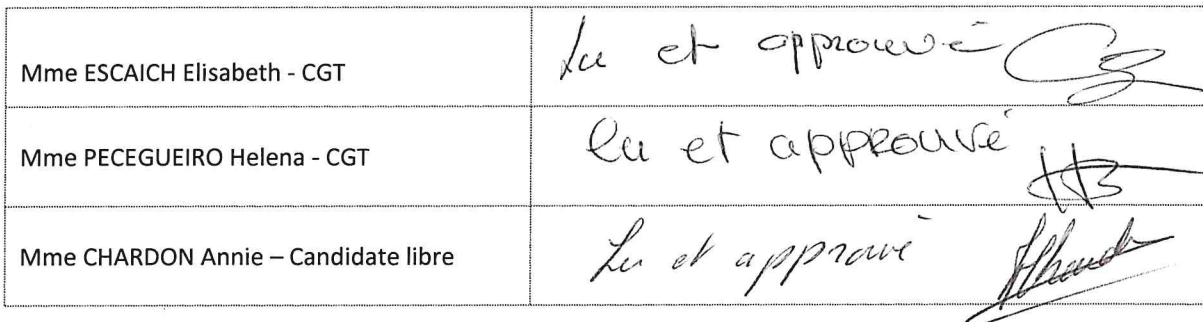 Mme ESCAICH Elisabeth - CGT
Lu et approuvé
Mme PECEGUEIRO Helena - CGT
lu et appRouvé
Mme CHARDON Annie – Candidate libre
Lu et approuvé